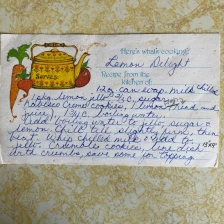 Here's what's cooking:
Lemon Delight
Recipe from the kitchen of:
12 oz can evap. milk chilled
1 pkg lemon jello, 3/4 c. sugar
Nabisco Crème cookies, 1 lemon (rind and
juice), 1 3/4 c. boiling water.
Add boiling water to jello, sugar &
lemon. Chill till slightly firm, then
beat. Whip chilled milk & add to
jello. Crumble cookies, line dish
with crumbs, save some for topping